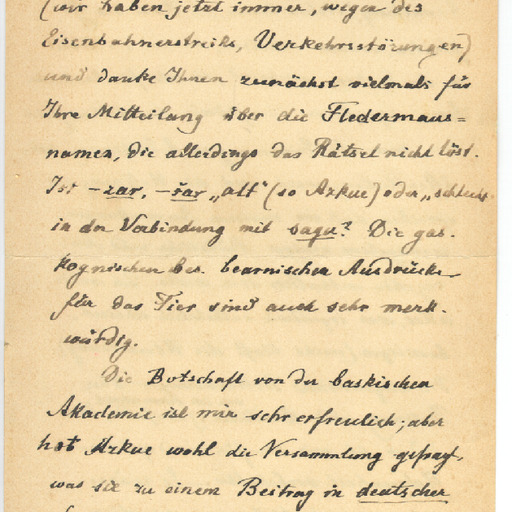 (wir haben jetzt immer, wegen des
Eisenbahnerstreiks, Verkehrsstörungen)
und danke Ihnen zunächst vielmals für
Ihre Mitteilung über die Fledermaus=
namen, die allerdings das Rätsel nicht löst.
Ist -zar, -šar „alt“ (so Azkue) oder „schlecht
in der Verbindung mit sagu? Die gas-
kognischen bes. bearnischen Ausdrücke
für das Tier sind auch sehr merk-
würdig.
Die Botschaft von der baskischen
Akademie ist mir sehr erfreulich; aber
hat Azkue wohl die Versammlung gefragt,
was sie zu einem Beitrag in deutscher